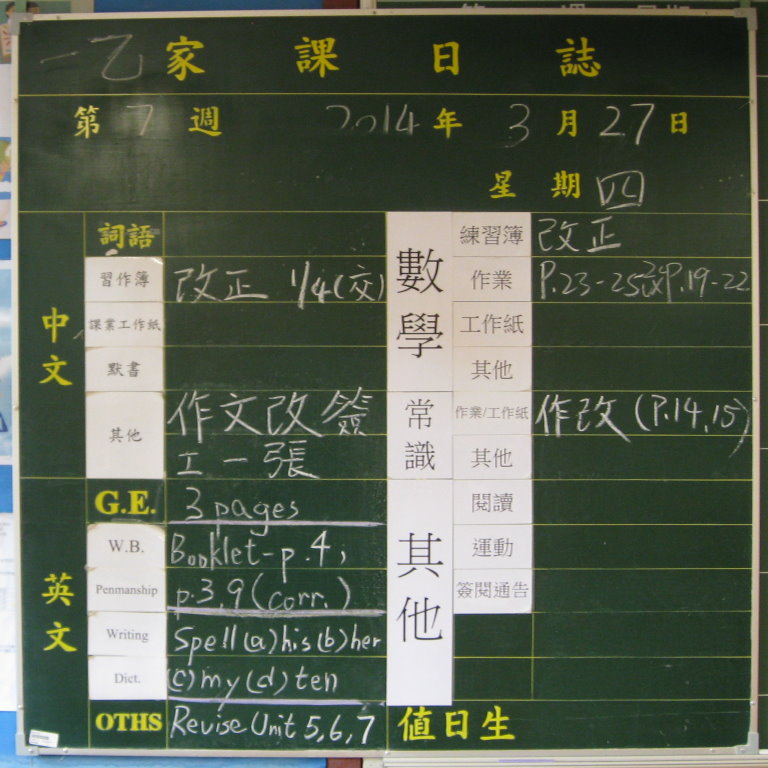 一乙家課日誌
第7週 2014年3月27日
星期四
中文
詞語
習作簿 改正 1/4(交)
課業工作紙
默書
其他 作文改簽
工一張
英文
G.E. 3 pages
W.B. Booklet-p.4,
Penmanship p.3,9(corr.)
Writing Spell(a)his(b)her
Dict. (c)my(d)ten
OTHS Revise Unit 5,6,7
數學
練習簿 改正
作業 P.23-25 P.19-22
工作紙
其他
常識
作業/工作紙 作改 (P.14,15)
其他
其他
閱讀
運動
簽閱通告
值日生